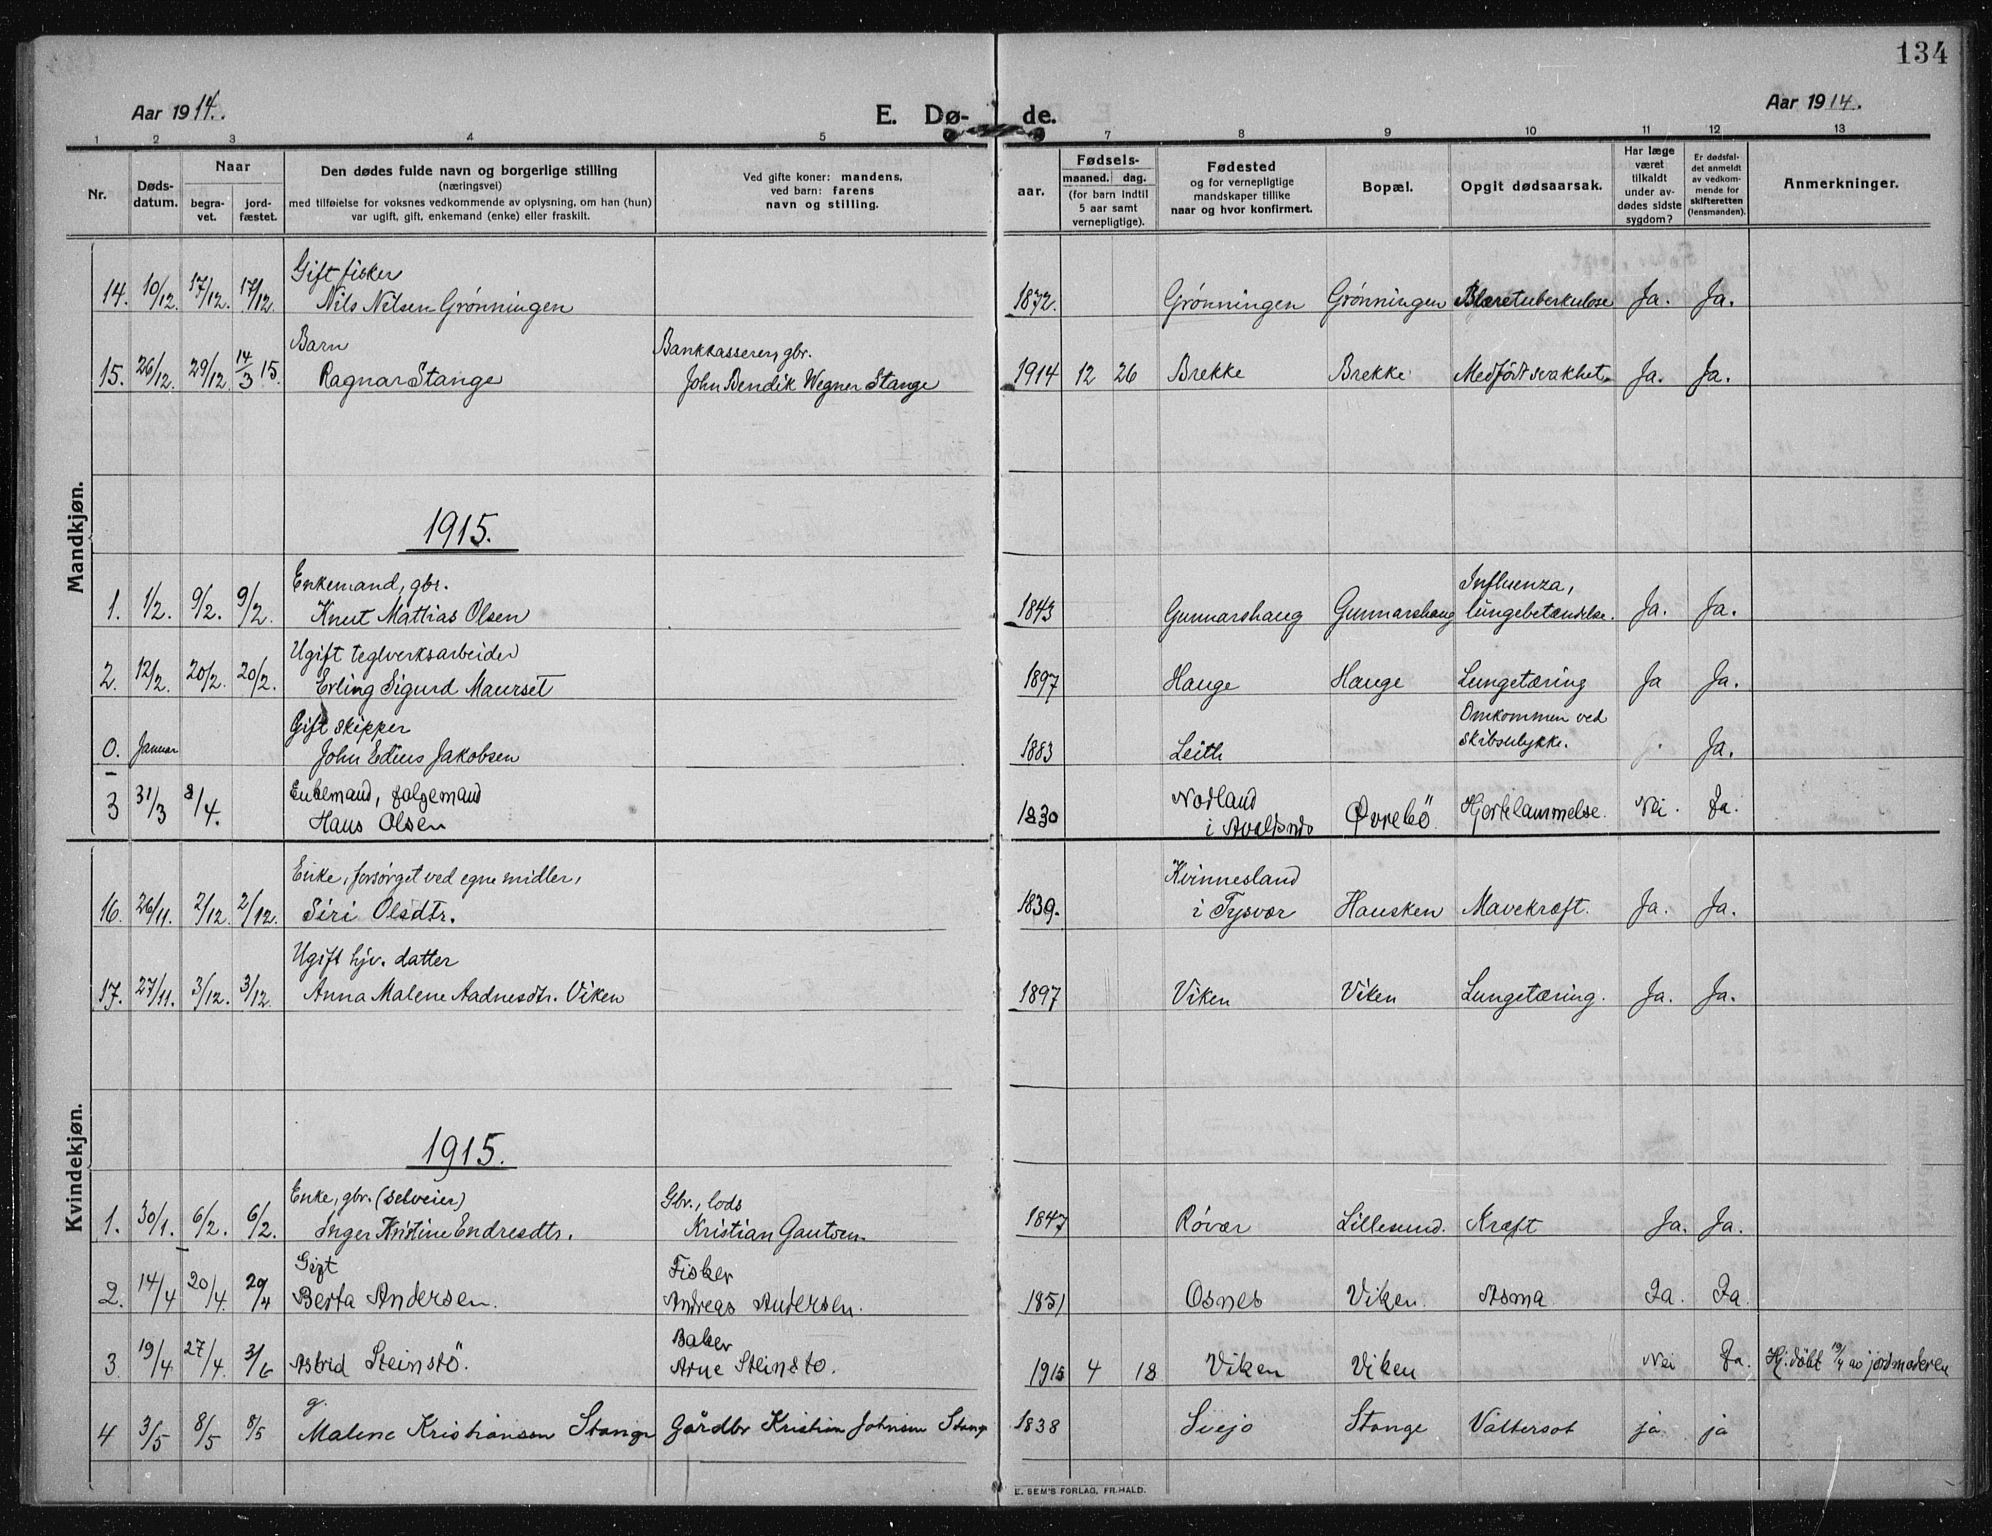 134
Aar 1914.
E. Dø-
de.
Aar 1914.
1 2 3 4 5 7 8 9 10 11 12 13
Nr.
Døds-
datum.
Naar
begra-
vet.
jord-
fæstet.
Den dødes fulde navn og borgerlige stilling
(næringsvei)
med tilføielse for voksnes vedkommende av oplysning, om han (hun)
var ugift, gift, enkemand (enke) eller fraskilt.
Ved gifte koner: mandens,
ved barn: farens
navn og stilling.
Fødsels-
aar.
maaned. dag.
(for barn indtil
5 aar samt
vernepligtige).
Fødested
og for vernepligtige
mandskaper tillike
naar og hvor konfirmert.
Bopæl.
Opgit dødsaarsak.
Har læge
været
tilkaldt
under av-
dødes sidste
sygdom?
Er dødsfal-
det anmeldt
av vedkom-
mende for
skifteretten
(lensmanden).
Anmerkninger.
Mandkjøn.
Gift fisker
14. 10/12. 17/12. 17/12. Nils Nilsen Grønningen 1872. Grønningen Grønningen Blæretuberkulose Ja. Ja.
Barn Bankkasserer, gbr.
15. 26/12. 29/12. 14/3 15. Ragnar Stange John Bendik Wegner Stange 1914 12 26 Brekke Brekke Medfödt svakhet. Ja. Ja.
1915.
Enkemand, gbr. Influenza,
1. 1/2. 9/2. 9/2. Knut Mathias Olsen 1843 Gunnarshaug Gunnarshaug lungebetændelse. Ja. Ja.
Ugift teglverksarbeider
2. 12/2. 20/2. 20/2. Erling Sigurd Maurset 1897 Hauge Hauge Lungetæring Ja Ja.
Gift skipper Omkommen ved
0. Januar John Edius Jakobsen 1883 Leith skibsulykke. Ja.
Enkemand, følgemand Nordland
3 31/3 8/4. Hans Olsen 1830 i Avaldsnes Øvrebö Hjertelammelse. Nei. Ja.
Kvindekjøn.
Enke, forsørget ved egne midler, Kvinnesland
16. 26/11. 2/12. 2/12. Siri Olsdtr. 1839. i Tysvær Hausken Mavekræft. Ja. Ja.
Ugift hjv. datter
17. 27/11. 3/12. 3/12. Anna Malene Aadnesdtr. Viken 1897 Viken Viken Lungetæring. Ja. Ja.
1915.
Enke, gbr. (selveier) Gbr., lods
1. 30/1. 6/2. 6/2. Inger Kristine Endresdtr. Kristian Gautsen 1847 Røvær Lillesund. Kræft Ja. Ja.
Gift Fisker
2. 14/4 20/4. 20/4 Berta Andersen. Andreas Andersen. 1851 Osnes Viken. Asma Ja. Ja.
Baker
3 19/4 27/4. 3/6 Astrid Steinstö. Arne Steinstö. 1915 4 18 Viken Viken Nei Ja. Hj.döbt 19/4 av jordmoderen
g.
4 3/5 8/5 8/5 Malene Kristiansen Stange Gårdbr Kristian Johnsen Stange 1838 Svejo Stange Vattersot ja ja
E. SEM'S FORLAG, FR.HALD.